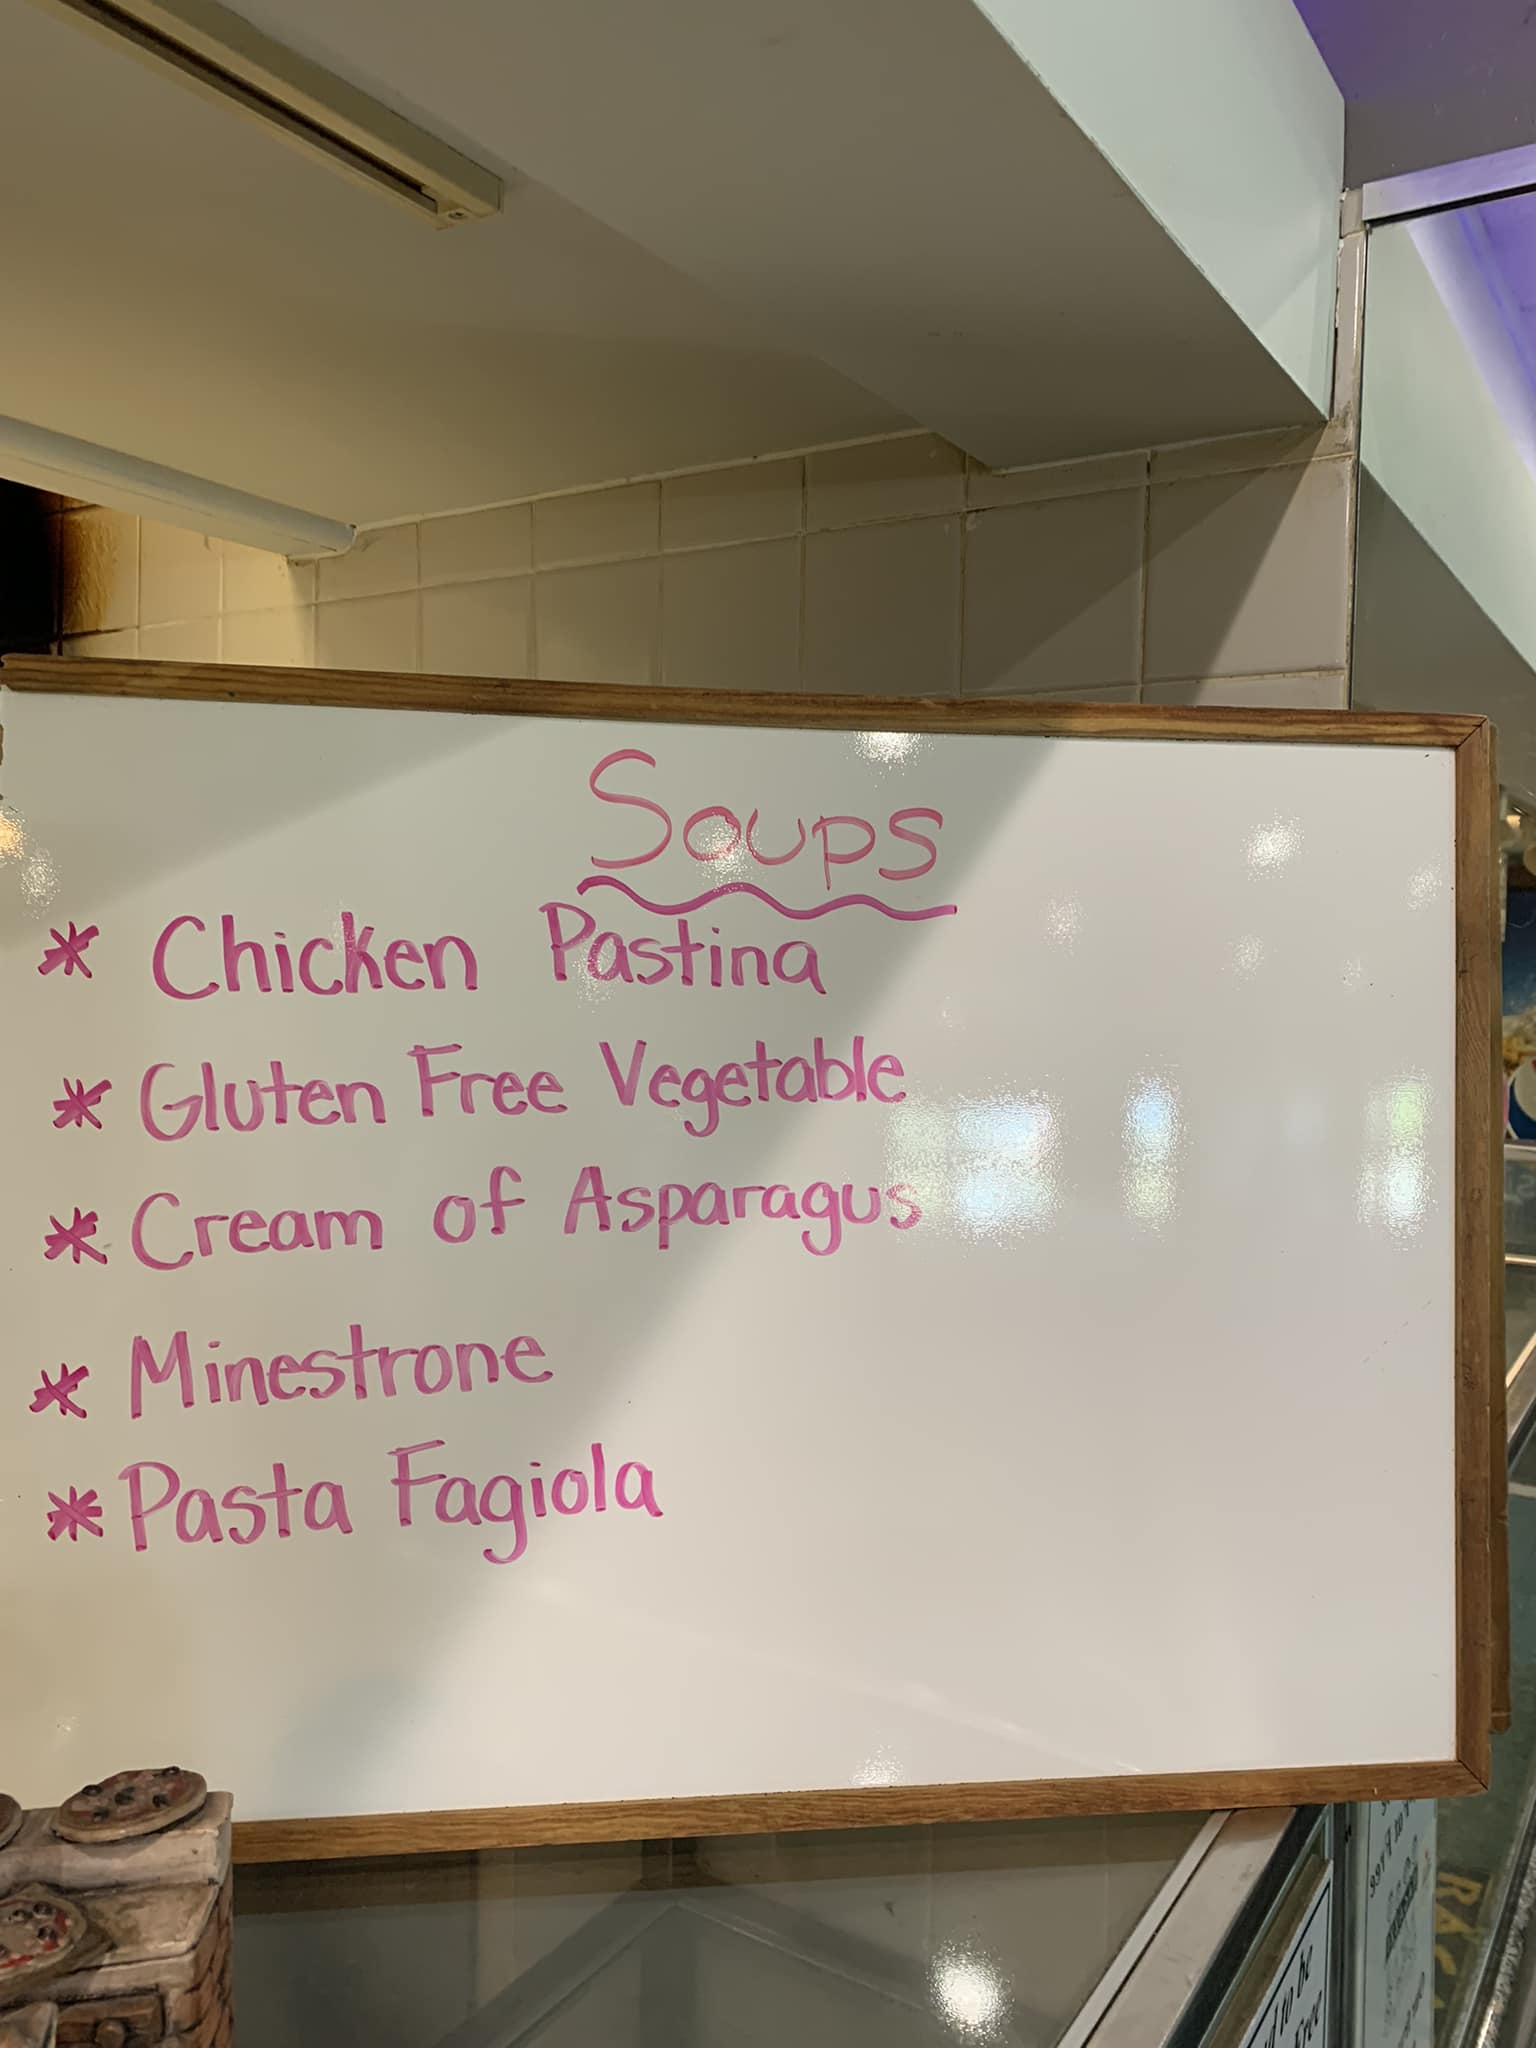 Soups
* Chicken Pastina
* Gluten Free Vegetable
* Cream of Asparagus
* Minestrone
* Pasta Fagiola
to be
Free